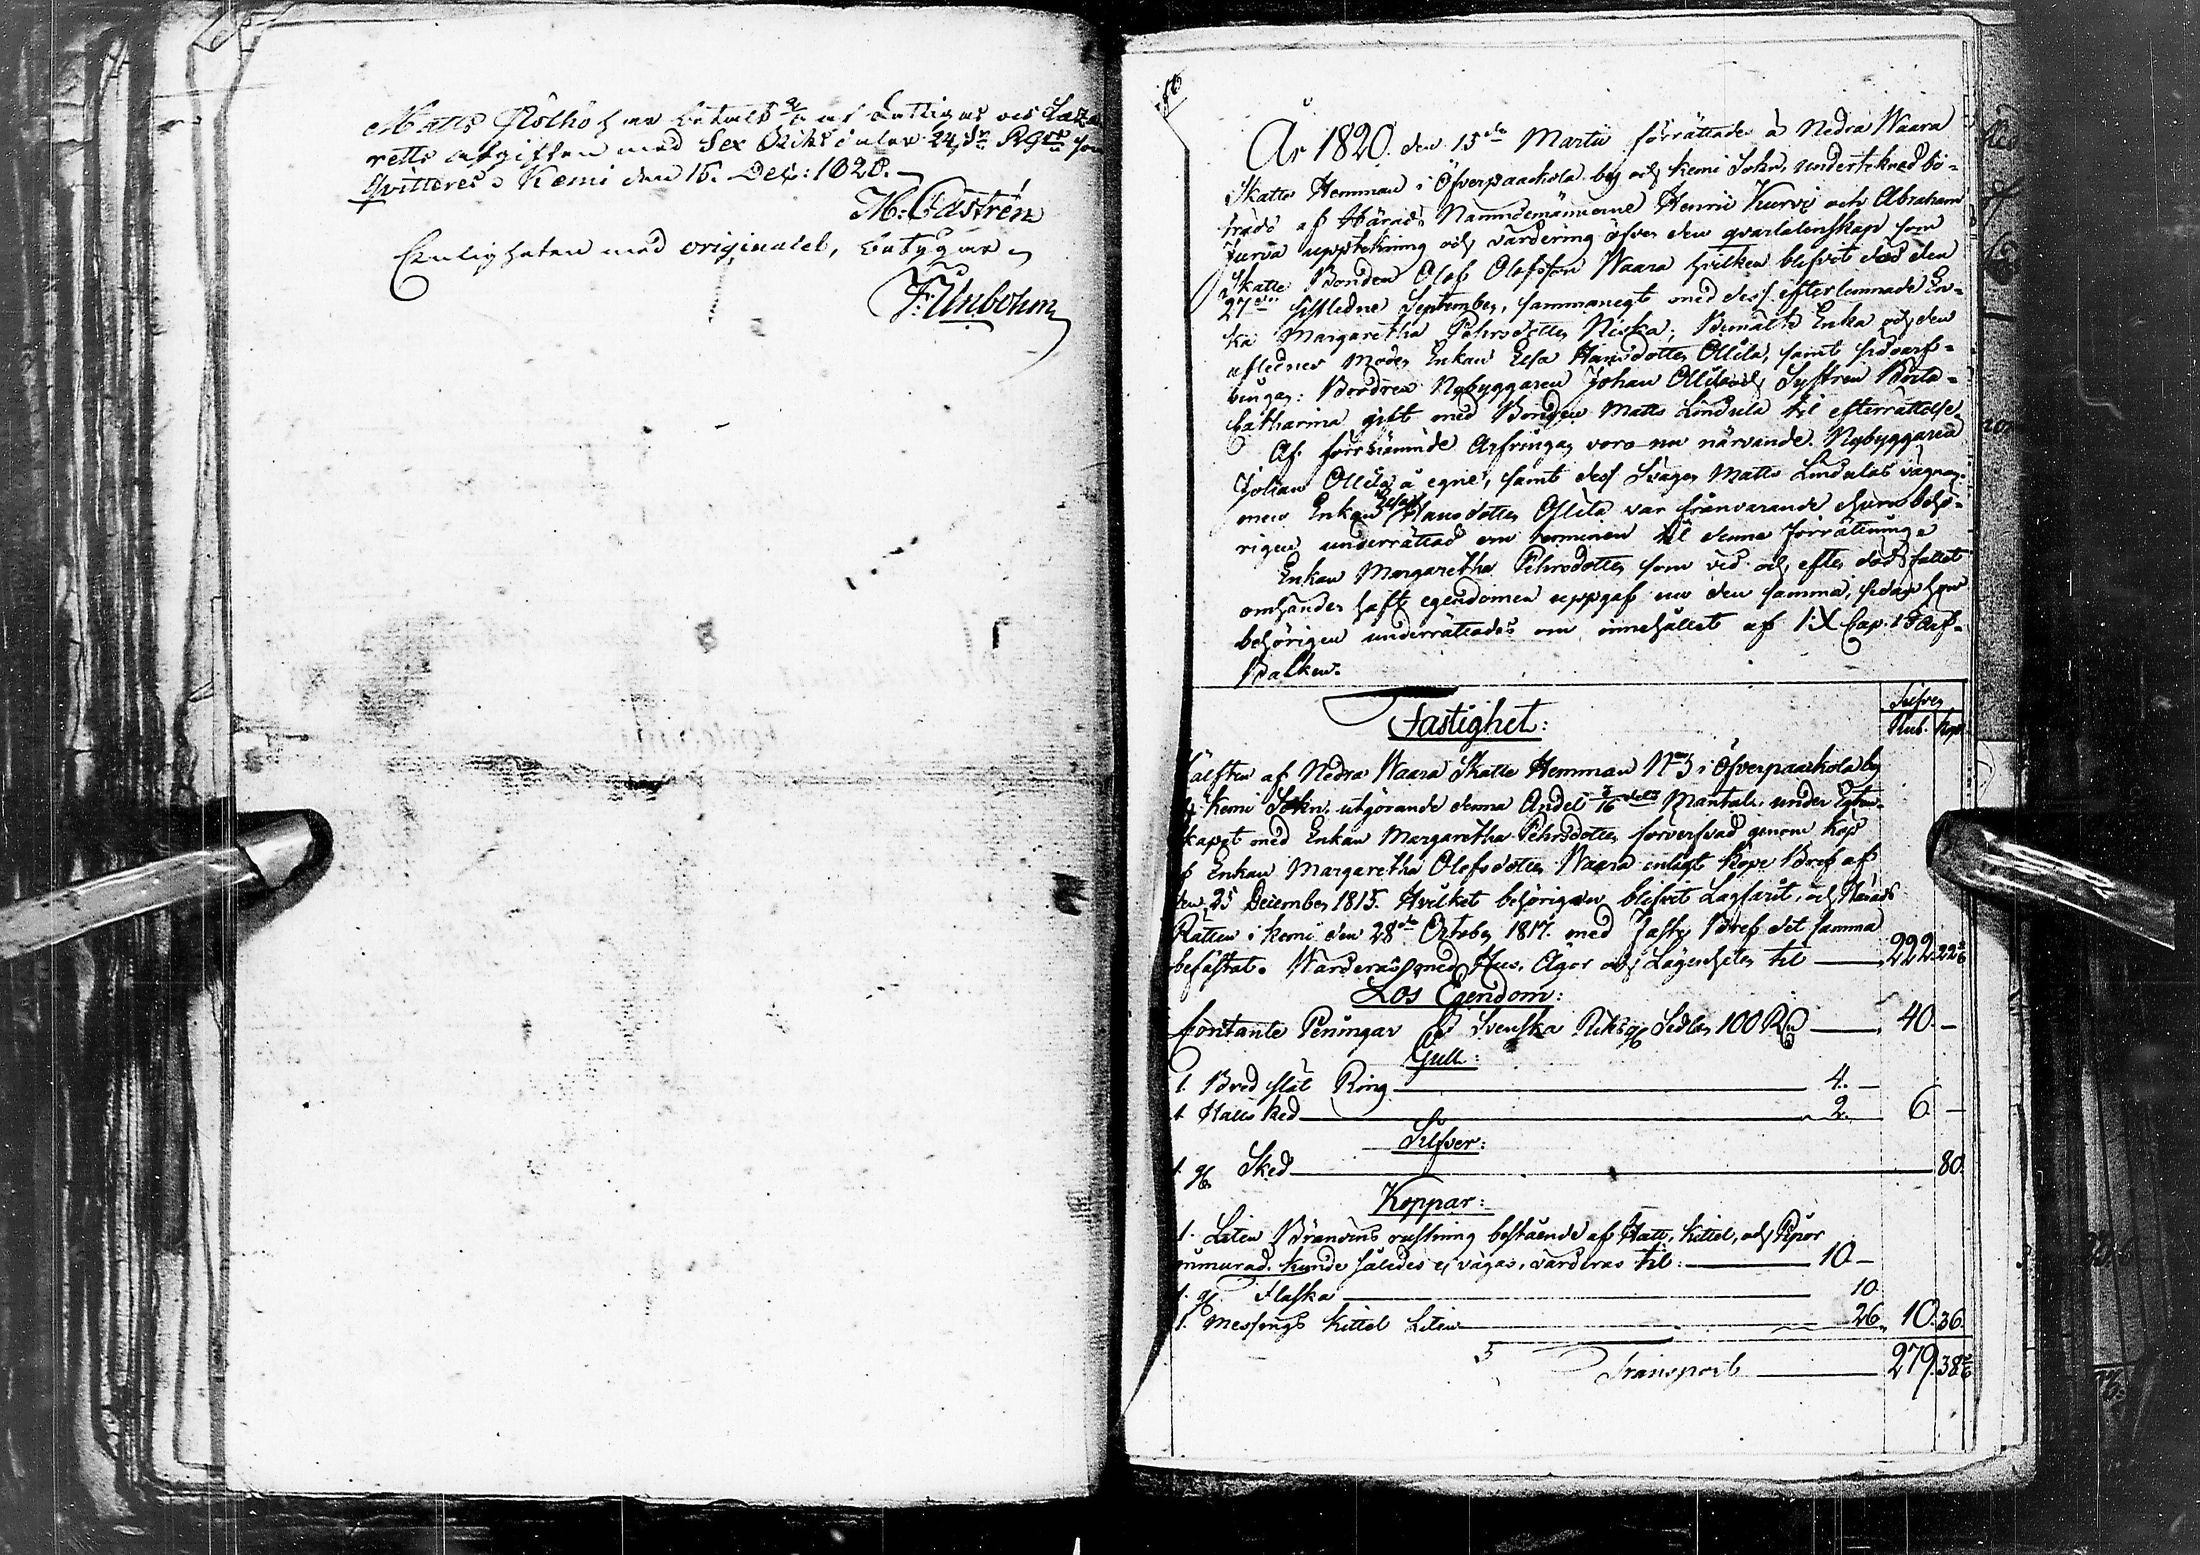 Matts har betalt af Fattigas och Laza
retts afgiften med Sex Riksdaler 24 sk Rgs som
Qvitteres. Kemi den 16. Dec: 1820.
M. Castrén
Enligheten med originalet, betygar
F: Unbohm
År 1820. den 15de Martii förrättades å Nedra Waara
Skatte Hemman i Öfverpaackola by och Kemi Sokn, undertecknad bi-
träds af Härads Nämndemännerne Henric Kurvi och Abraham
Jurva uppteckning och värdering öfver den qvarlåtenskap som
Skatte Bonden Olof Olofsson Waara hvilken blifvit död den
27de sistledne September, sammanegt med dess efterlemnade En-
ka Margaretha Pehrsdotter Niska; Bemälte Enka och den
aflednes Moder Enkan Elsa Hansdotter Ollila, samt sidoarf-
vingar: Brodren Nybyggaren Johan Ollila och Systren Brita
Catharina gift med Bonden Matts Lindula til efterrättelse.
Af förrnämnde Arfvingar voro nu närvande Nybyggaren
Johan Ollila å egne, samt dess Svåger Matts Lindulas vägnar
men Enkan Elsa Hansdotter Ollila var frånvarande ehuru behö-
rigen underrättad om terminen til denna förrättning.
Enkan Margaretha Pehrsdotter som vid och efter dödsfallet
omhänder haft egendomen uppgaf nu den samma, sedan hon
behörigen underrättades om innehållet af IX Cap. 1 § Ärf-
Balken.
Silfver
Fastighet:
Rub. Kop.
Hälften af Nedra Waara Skatte Hemman No 3 i Öfverpaackola by
Kemi Sokn, utgörande denna Andel 3/16 dels Mantal, under Ägten-
skapet med Enkan Margaretha Pehrsdotter förverfvad genom köp
af Enkan Margaretha Olofsdotter Waara enligt Köpe Bref af
den 25 December 1815. Hvilket behörigen blifvit Lagfarit, och Härads
Rätten i Kemi den 28de October 1817. med Faste Bref det samma
befästat. Wärderas med Hus, Ägor och Lägenheter til — 222. 22 2/6
Lös Egendom:
Contante Peningar i Svenska Riksgs Sedlar 100 Rd — 40. —
Gull:
1. Bred slät Ring — 4. —
1. Hals ked — 2. 6. —
Silfver:
1. Sked — 80.
Koppar:
1. Liten Bränvins rustning bestående af Hatt, Kittel, och Pipor
inmurad. kunde således ej vägas, värderas til: — 10. —
1. Flaska — 10
1. Messings Kittel Liten — 26. 10. 36.
Transport — 279. 38 2/6